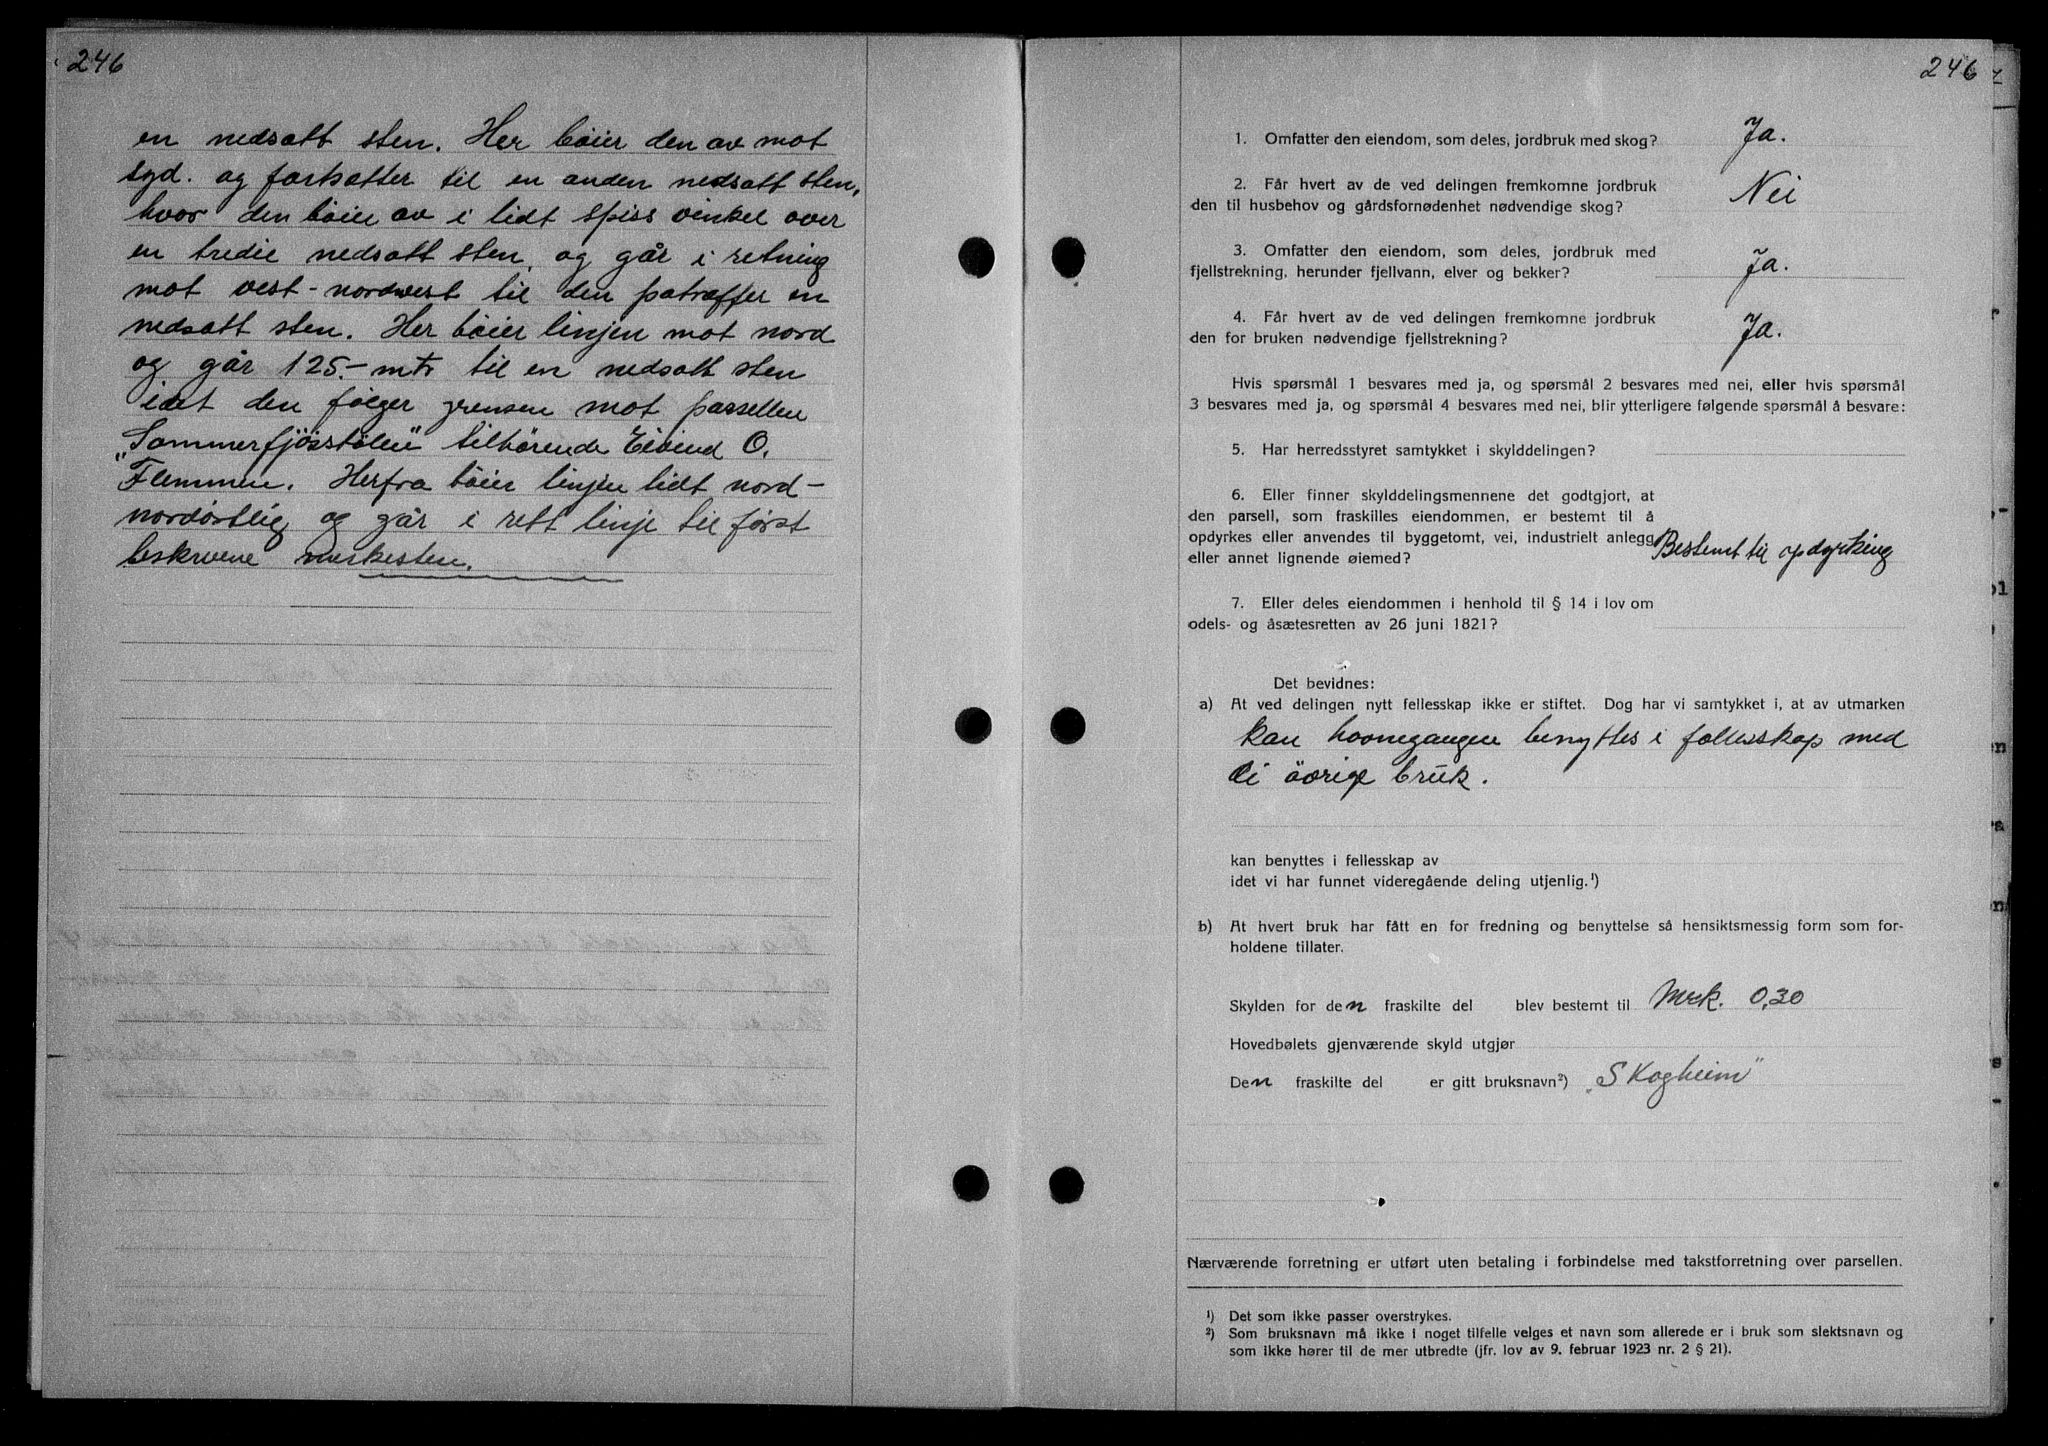 246
en nedsatt sten. Her bøier den av mot
syd. og fortsetter til en anden nedsatt sten,
hvor den bøie av i lidt spiss vinkel over
en tredie nedsatt sten, og går i retning
mot vest-nordvest til den patræffer en
nedsatt sten. Her bøier linjen mot nord
og går 125.- mtr til en nedsatt sten
idet den følger grensen mot parsellen
"Sommerfjøsstølen" tilhørende Eivind O.
Flemmen. Herfra bøier linjen lidt nord-
nordøstlig og går i rett linje til først
beskrevne merkesten.
246
1. Omfatter den eiendom, som deles, jordbruk med skog? Ja.
2. Får hvert av de ved delingen fremkomne jordbruk
den til husbehov og gårdsfornødenhet nødvendige skog? Nei
3. Omfatter den eiendom, som deles, jordbruk med
fjellstrekning, herunder fjellvann, elver og bekker? Ja.
4. Får hvert av de ved delingen fremkomne jordbruk
den for bruken nødvendige fjellstrekning? Ja.
Hvis spørsmål 1 besvares med ja, og spørsmål 2 besvares med nei, eller hvis spørsmål
3 besvares med ja, og spørsmål 4 besvares med nei, blir ytterligere følgende spørsmål å besvare:
5. Har herredsstyret samtykket i skylddelingen?
6. Eller finner skylddelingsmennene det godtgjort, at
den parsell, som fraskilles eiendommen, er bestemt til å
opdyrkes eller anvendes til byggetomt, vei, industrielt anlegg
eller annet lignende øiemed? Bestemt til opdyrking
7. Eller deles eiendommen i henhold til § 14 i lov om
odels- og åsætesretten av 26 juni 1821?
Det bevidnes:
a) At ved delingen nytt fellesskap ikke er stiftet. Dog har vi samtykket i, at av utmarken
kan havnegangen benyttes i fellesskap med
di övrige bruk.
kan benyttes i fellesskap av
idet vi har funnet videregående deling utjenlig.¹)
b) At hvert bruk har fått en for fredning og benyttelse så hensiktsmessig form som for-
holdene tillater.
Skylden for den fraskilte del blev bestemt til Mrk. 0,30
Hovedbølets gjenværende skyld utgjør
Den fraskilte del er gitt bruksnavn²) "Skogheim"
Nærværende forretning er utført uten betaling i forbindelse med takstforretning over parsellen.
¹) Det som ikke passer overstrykes.
²) Som bruksnavn må ikke i noget tilfelle velges et navn som allerede er i bruk som slektsnavn og
som ikke hører til de mer utbredte (jfr. lov av 9. februar 1923 nr. 2 § 21).